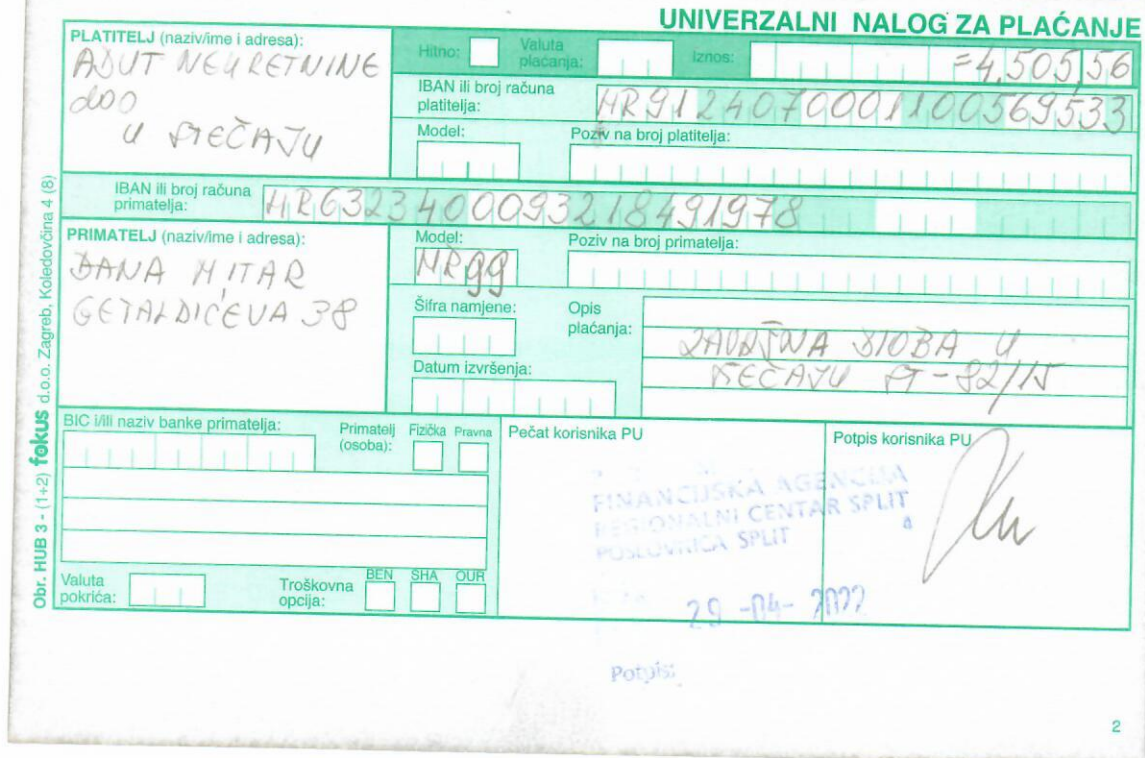 UNIVERZALNI NALOG ZA PLAĆANJE
PLATITELJ (naziv/ime i adresa):
ADUT NEKRETNINE
doo
U STEČAJU
Hitno:
Valuta plaćanja:
Iznos:
=4.505,56
IBAN ili broj računa platitelja:
HR9124070001100569533
Model:
Poziv na broj platitelja:
IBAN ili broj računa primatelja:
HR6323400093218491978
PRIMATELJ (naziv/ime i adresa):
DANA MITAR
GETALDIĆEVA 38
Model:
HR99
Poziv na broj primatelja:
Šifra namjene:
Opis plaćanja:
ZAVRŠNA DIOBA U
STEČAJU ST-82/15
Datum izvršenja:
BIC i/ili naziv banke primatelja:
Primatelj (osoba):
Fizička
Pravna
Pečat korisnika PU
FINANCIJSKA AGENCIJA
REGIONALNI CENTAR SPLIT
POSLOVNICA SPLIT
29 -04- 2022
Potpis:
Potpis korisnika PU
Valuta pokrića:
Troškovna opcija:
BEN
SHA
OUR
Obr. HUB 3 - (1+2) fokus d.o.o. Zagreb, Koledovčina 4 (8)
2